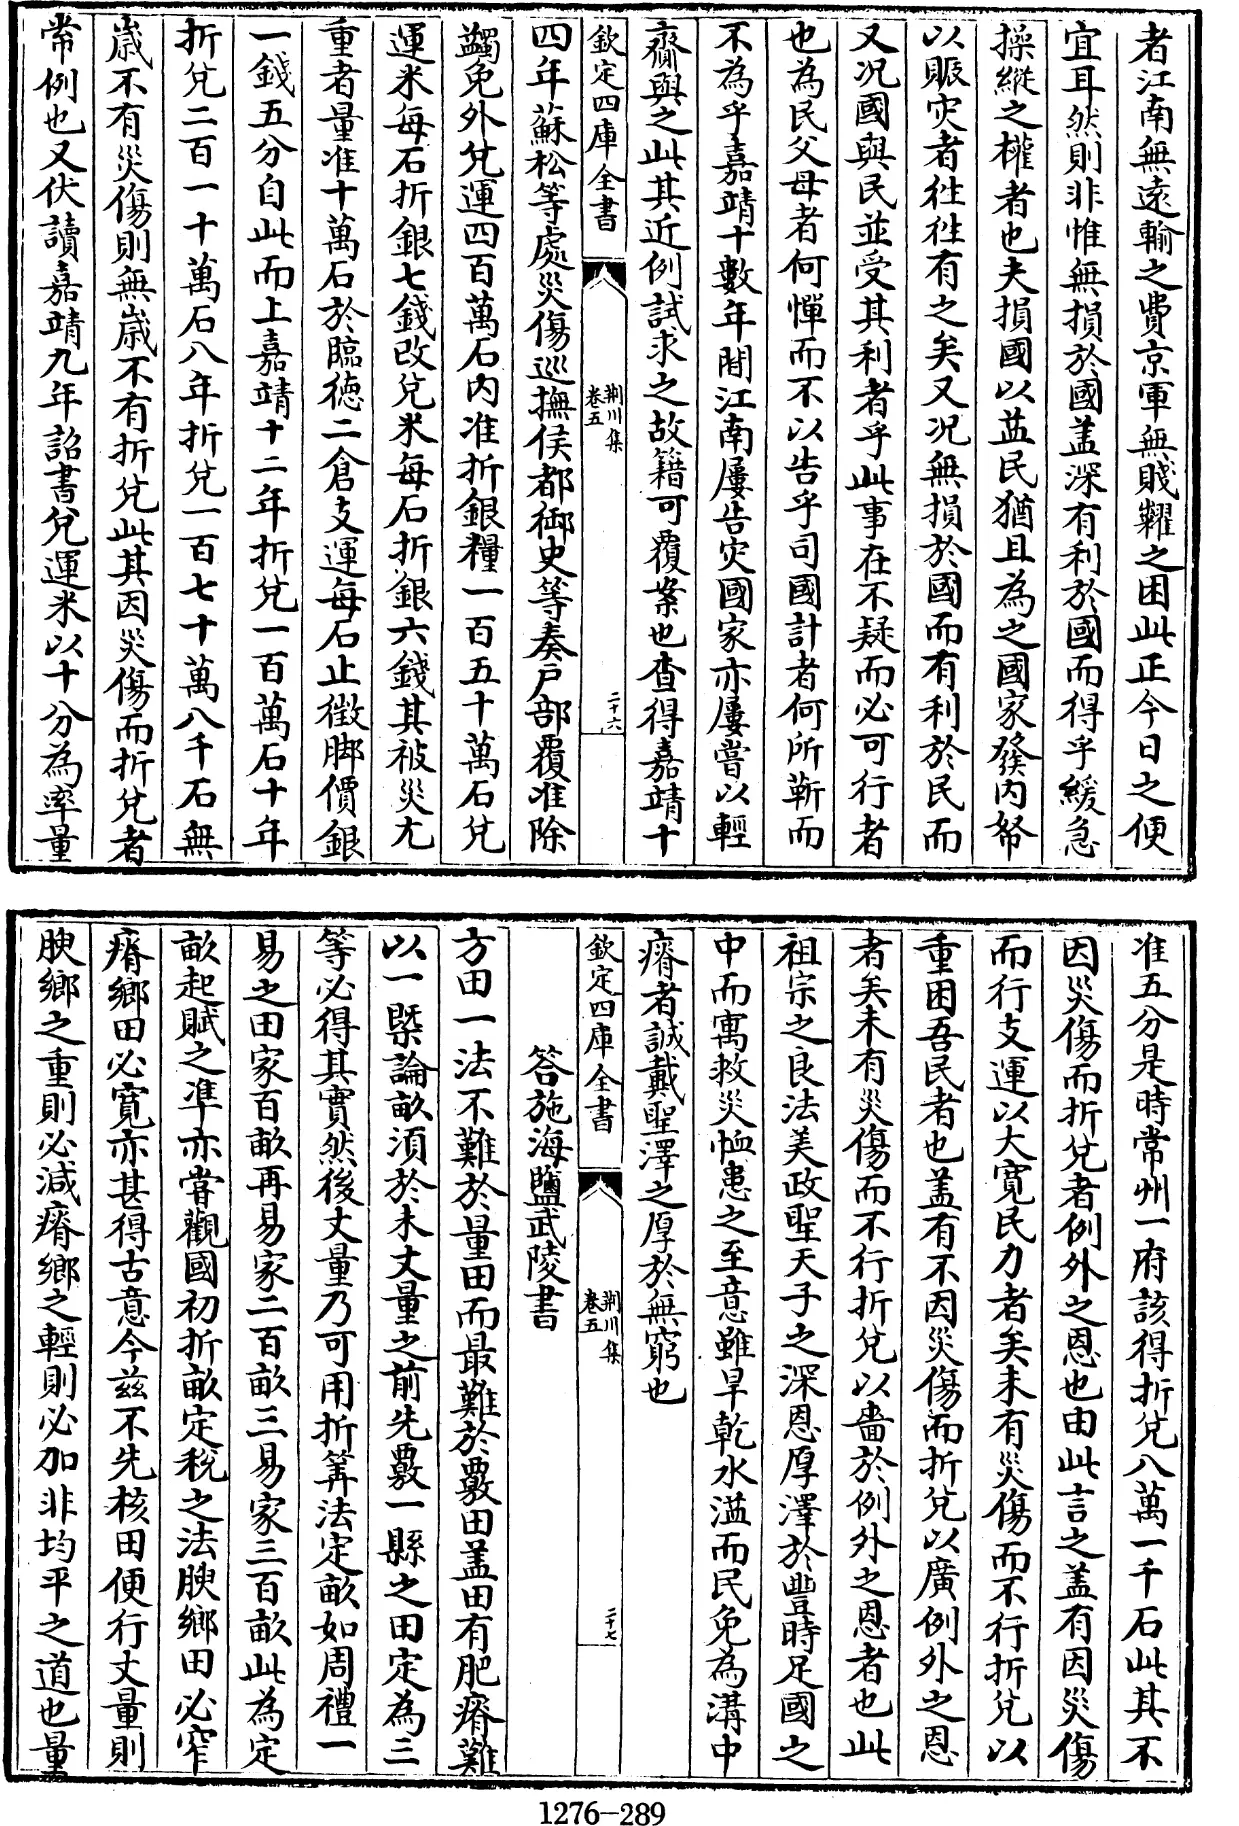 者江南無遠輸之費京軍無賤糶之困此正今日之便
宜耳然則非惟無損於國盖深有利於國而得乎緩急
操縱之權者也夫損國以益民猶且為之國家發内帑
以賑灾者徃徃有之矣又况無損於國而有利於民而
又况國與民並受其利者乎此事在不疑而必可行者
也為民父母者何憚而不以告乎司國計者何所靳而
不為乎嘉靖十數年間江南屢告灾國家亦屢嘗以輕
齎與之此其近例試求之故籍可覆案也查得嘉靖十
欽定四庫全書
荆川集
卷五
二十六
四年蘇松等處災傷巡撫侯都御史等奏户部覆准除
蠲免外兌運四百萬石内准折銀糧一百五十萬石兌
運米每石折銀七錢改兌米每石折銀六錢其被災尤
重者量准十萬石於臨德二倉支運每石止徵脚價銀
一錢五分自此而上嘉靖十二年折兌一百萬石十年
折兌二百一十萬石八年折兌一百七十萬八千石無
嵗不有災傷則無嵗不有折兌此其因災傷而折兌者
常例也又伏讀嘉靖九年詔書兌運米以十分為率量
准五分是時常州一府該得折兌八萬一千石此其不
因災傷而折兌者例外之恩也由此言之盖有因災傷
而行支運以大寛民力者矣未有災傷而不行折兌以
重困吾民者也盖有不因災傷而折兌以廣例外之恩
者矣未有災傷而不行折兌以嗇於例外之恩者也此
祖宗之良法美政聖天子之深恩厚澤於豐時足國之
中而寓救災恤患之至意雖旱乾水溢而民免為溝中
瘠者誠戴聖澤之厚於無窮也
欽定四庫全書
荆川集
卷五
二十七
答施海鹽武陵書
方田一法不難於量田而最難於覈田盖田有肥瘠難
以一槩論畝須於未丈量之前先覈一縣之田定為三
等必得其實然後丈量乃可用折筭法定畝如周禮一
易之田家百畝再易家二百畝三易家三百畝此為定
畝起賦之凖亦嘗觀國初折畝定税之法腴鄉田必窄
瘠鄉田必寛亦甚得古意今兹不先核田便行丈量則
腴鄉之重則必減瘠鄉之輕則必加非均平之道也量
1276-289